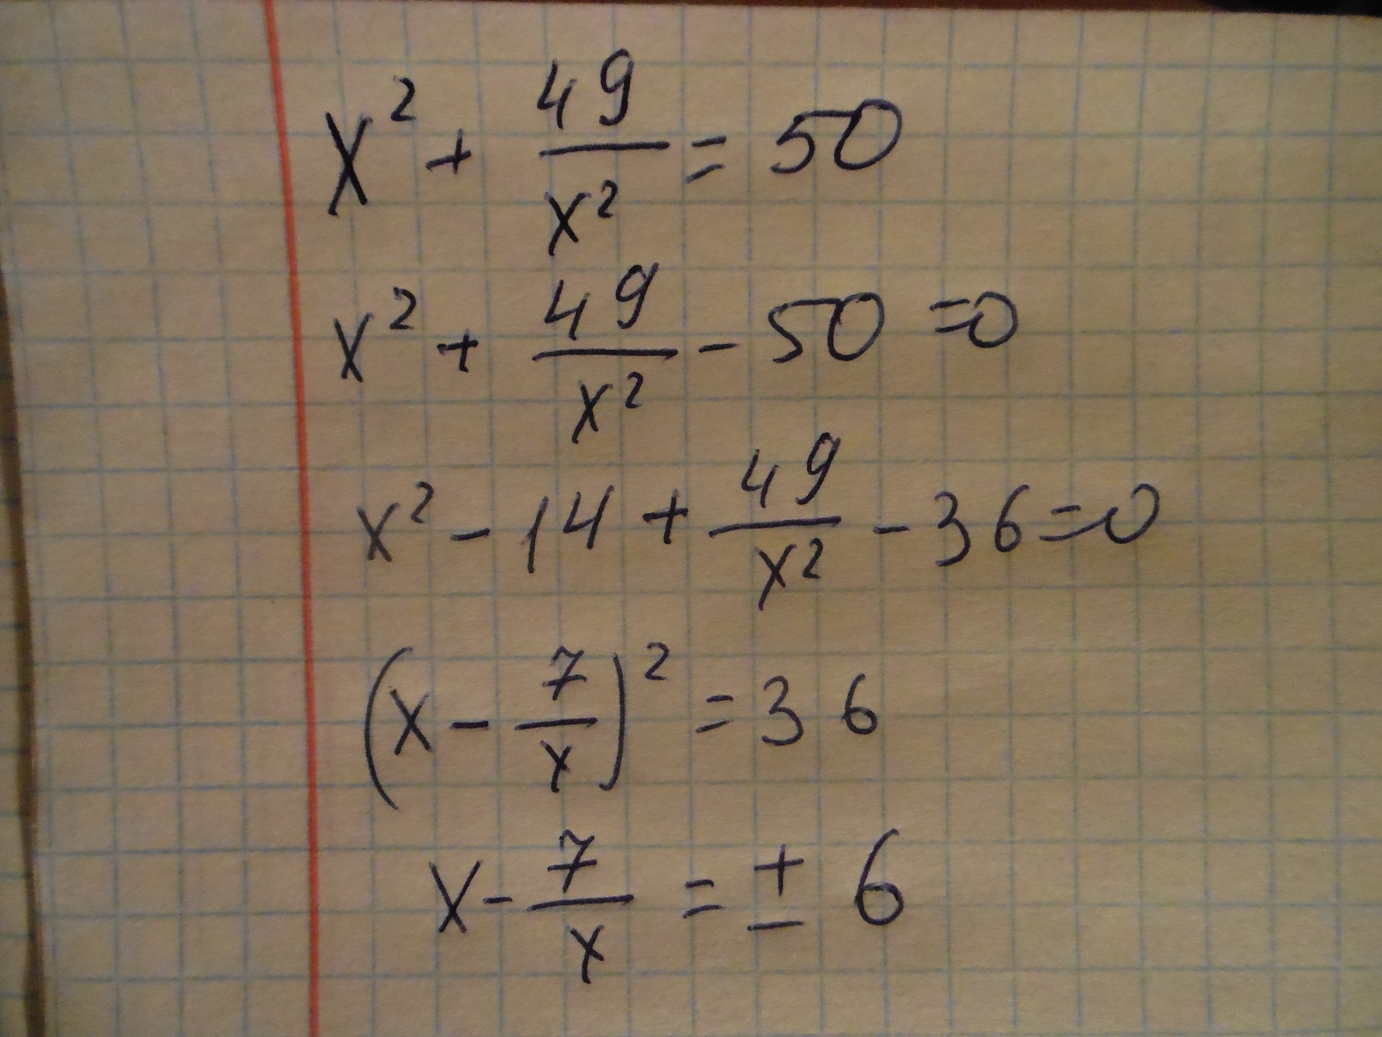 x² + 49/x² = 50
x² + 49/x² - 50 = 0
x² - 14 + 49/x² - 36 = 0
(x - 7/x)² = 36
x - 7/x = ± 6